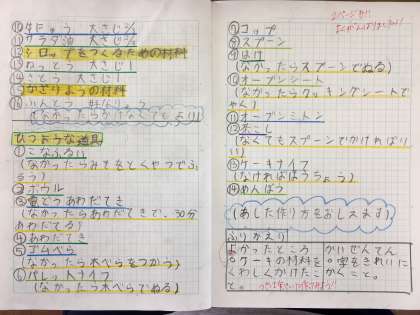 ⑩牛にゅう 大さじ2/3
⑪サラダ油 大さじ2/3
⑫シロップをつくるための材料
⑬ねっとう 大さじ1
⑭さとう 大さじ1
⑮かざりようの材料
⑯ふんとう
(なかったらかけなくてよい)
ひつような道具
①こなふるい
(なかったらみそをとくやつでふ
るう)
②ボウル
③電どうあわだてき
(なかったらあわだてきで、30分
あわだてる)
④あわだてき
⑤ゴムべら
(なかったら木べらをつかう)
⑥パレットナイフ
(なかったら木べらでぬる)
⑦コップ
⑧スプーン
⑨はけ
(なかったらスプーンでぬる)
⑩オーブンシート
(なかったらクッキングシートで
やく)
⑪オーブンミトン
⑫茶こし
(なくてもスプーンでかければい
い)
⑬ケーキナイフ
(なければほうちょう)
⑭めんぼう
(あした作り方をおしえます)
ふりかえり
よかったところ かいぜんてん
ケーキの材料を 字をきれいに
くわしくかけたこ かくこと。
と。